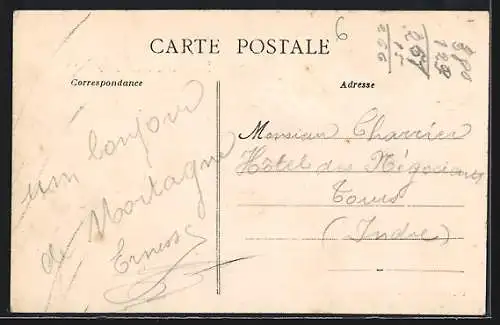 6
CARTE POSTALE
Correspondance
Adresse
un bonjour
de Mortagne
Ernest
Monsieur Charrier
Hôtel des Négociants
Tours
(Indre)